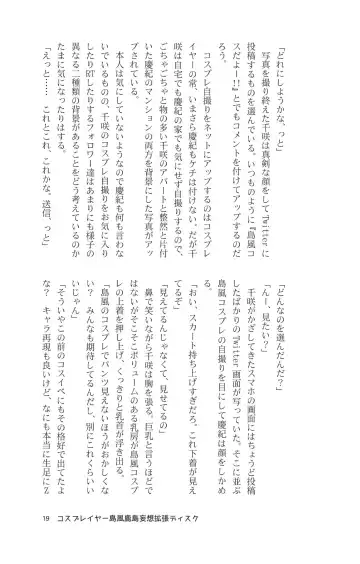 「どれにしようかな、っと」
写真を撮り終えた千咲は真剣な顔をしてTwitterに
投稿するものを選んでいる。いつものように『島風コ
スだよー!!』とでもコメントを付けてアップするのだ
ろう。
コスプレ自撮りをネットにアップするのはコスプレ
イヤーの常、いまさら慶紀もケチは付けない。だが千
咲は自宅でも慶紀の家でも気にせず自撮りするので、
ごちゃごちゃと物の多い千咲のアパートと整然と片付
いた慶紀のマンションの両方を背景にした写真がアッ
プされている。
本人は気にしていないようなので慶紀も何も言わな
いでいるものの、千咲のコスプレ自撮りをお気に入り
したりRTしたりするフォロワー達はあまりにも様子の
異なる二種類の背景があることをどう考えているのか
たまに気になったりはする。
「えっと…… これとこれ、これかな。送信、っと」
「どんなのを選んだんだ?」
「んー、見たい?」
千咲がかざしてきたスマホの画面にはちょうど投稿
したばかりのTwitter画面が写っていた。そこに並ぶ
島風コスプレの自撮りを目にして慶紀は顔をしかめ
る。
「おい、スカート持ち上げすぎだろ。これ下着が見え
てるぞ」
「見えてるんじゃなくて、見せてるの」
鼻で笑いながら千咲は胸を張る。巨乳と言うほどで
はないがそこそこボリュームのある乳房が島風コスプ
レの上着を押し上げ、くっきりと乳首が浮き出る。
「島風のコスプレでパンツ見えないほうがおかしくな
い? みんなも期待してるんだし、別にこれくらいい
いじゃん」
「そういやこの前のコスイベにもその格好で出てたよ
な? キャラ再現も良いけど、なにも本当に生足にZ
19 コスプレイヤー島風鹿島妄想拡張ディスク